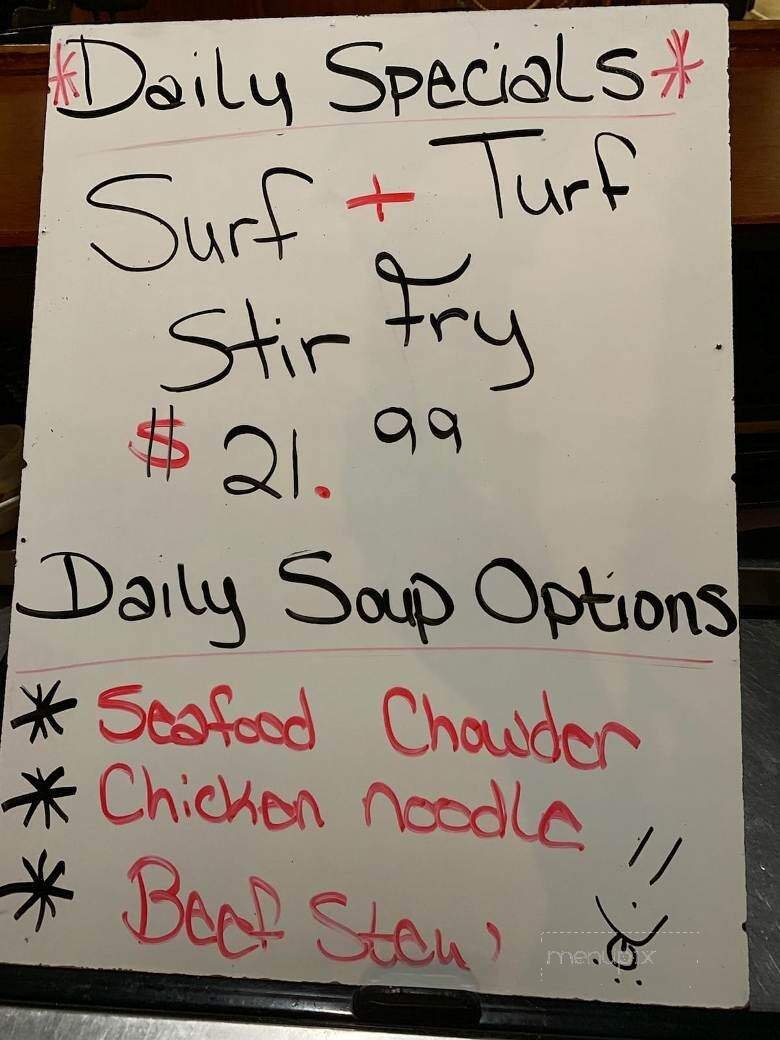 *Daily Specials*
Surf + Turf
Stir Fry
$ 21.99
Daily Soup Options
* Seafood Chowder
* Chicken noodle
* Beef Stew
menupix